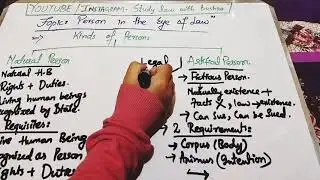 YOUTUBE / INSTAGRAM - Study law with bushra
Topic: Person in the Eye of Law"
Kinds of Person
Natural Person
Legal
Artificial Person
Natural H.B
Rights + Duties.
Living human beings
Recognized by State.
Requisites:
Human Being
as Person
Rights + Duti
→ Fictious Person.
Naturally existence +
Facts X, law → existence.
→ Can Sue, Can be Sued.
→ 2 Requirements:
→ Corpus (Body)
→ Animus (Intention)